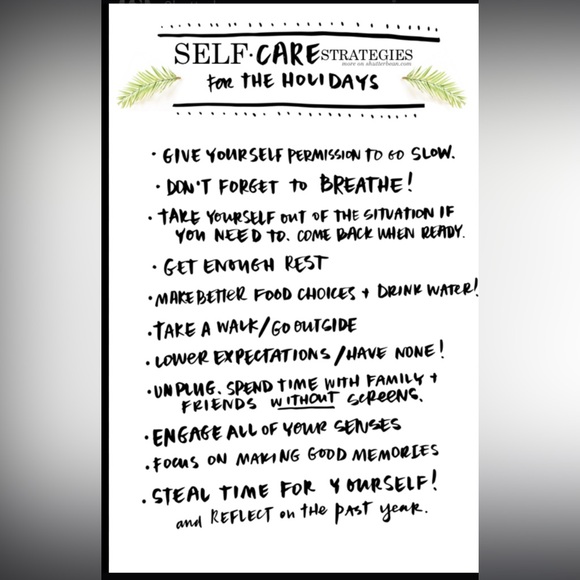 SELF-CARE STRATEGIES
more on shutterbean.com
FOR THE HOLIDAYS
• GIVE YOURSELF PERMISSION TO GO SLOW.
• DON'T FORGET to BREATHE!
• TAKE YOURSELF OUT OF THE SITUATION IF
YOU NEED TO. COME BACK WHEN READY.
• GET ENOUGH REST
• MAKE BETTER FOOD CHOICES + DRINK WATER!
• TAKE A WALK/GO OUTSIDE
• LOWER EXPECTATIONS/HAVE NONE!
• UNPLUG. SPEND TIME WITH FAMILY +
FRIENDS WITHOUT SCREENS.
• ENGAGE ALL OF YOUR SENSES
• FOCUS ON MAKING GOOD MEMORIES
• STEAL TIME FOR YOURSELF!
and REFLECT on the PAST year.